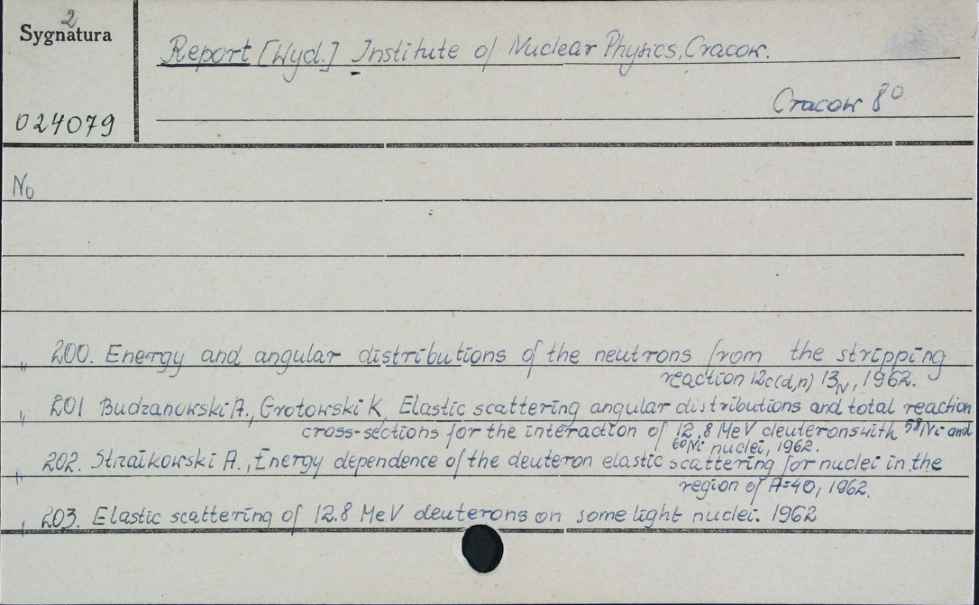 2
Sygnatura
Report [Wyd.] Institute of Nuclear Physics, Cracow.
Cracow 8°
024079
No
" 200. Energy and angular distributions of the neutrons from the stripping
reaction 12c(d,n) 13N, 1962.
" 201 Budzanowski A., Grotowski K. Elastic scattering angular distributions and total reaction
cross-sections for the interaction of 12,8 MeV deuterons with 58Ni and
60Ni nuclei, 1962.
" 202. Strzałkowski A., Energy dependence of the deuteron elastic scattering for nuclei in the
region of A=40, 1962.
" 203. Elastic scattering of 12.8 MeV deuterons on some light nuclei. 1962